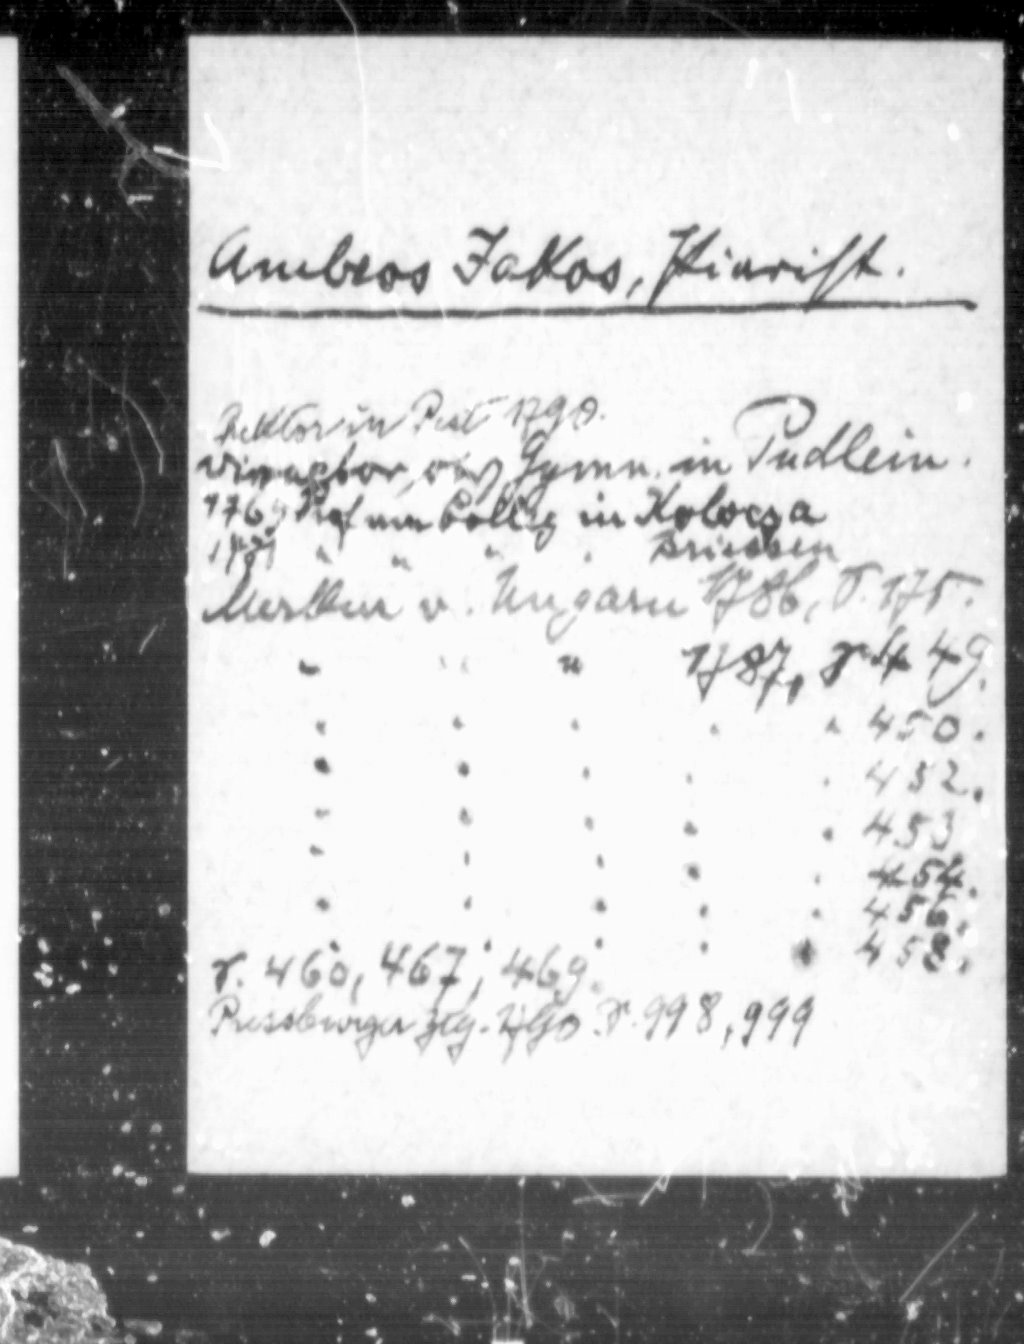 Ambros Jakos, Piarist.
Rektor in Pest 1790.
Direktor des Gymn. in Pudlein.
1769 Prof am Colleg in Kolocza
1771 " " " " Briessen
Merkur v. Ungarn 1786, S. 175.
" " " 1787, S. 449.
" " " " " 450.
" " " " " 452.
" " " " " 453
" " " " " 454.
" " " " " 456.
" " " " " 458.
S. 460, 467, 469.
Pressburger Ztg. 1790. S. 998, 999